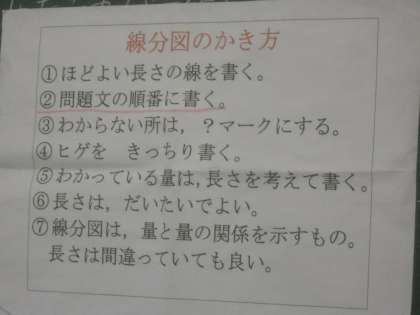 線分図のかき方
①ほどよい長さの線を書く。
②問題文の順番に書く。
③わからない所は，？マークにする。
④ヒゲを　きっちり書く。
⑤わかっている量は，長さを考えて書く。
⑥長さは，だいたいでよい。
⑦線分図は，量と量の関係を示すもの。
長さは間違っていても良い。